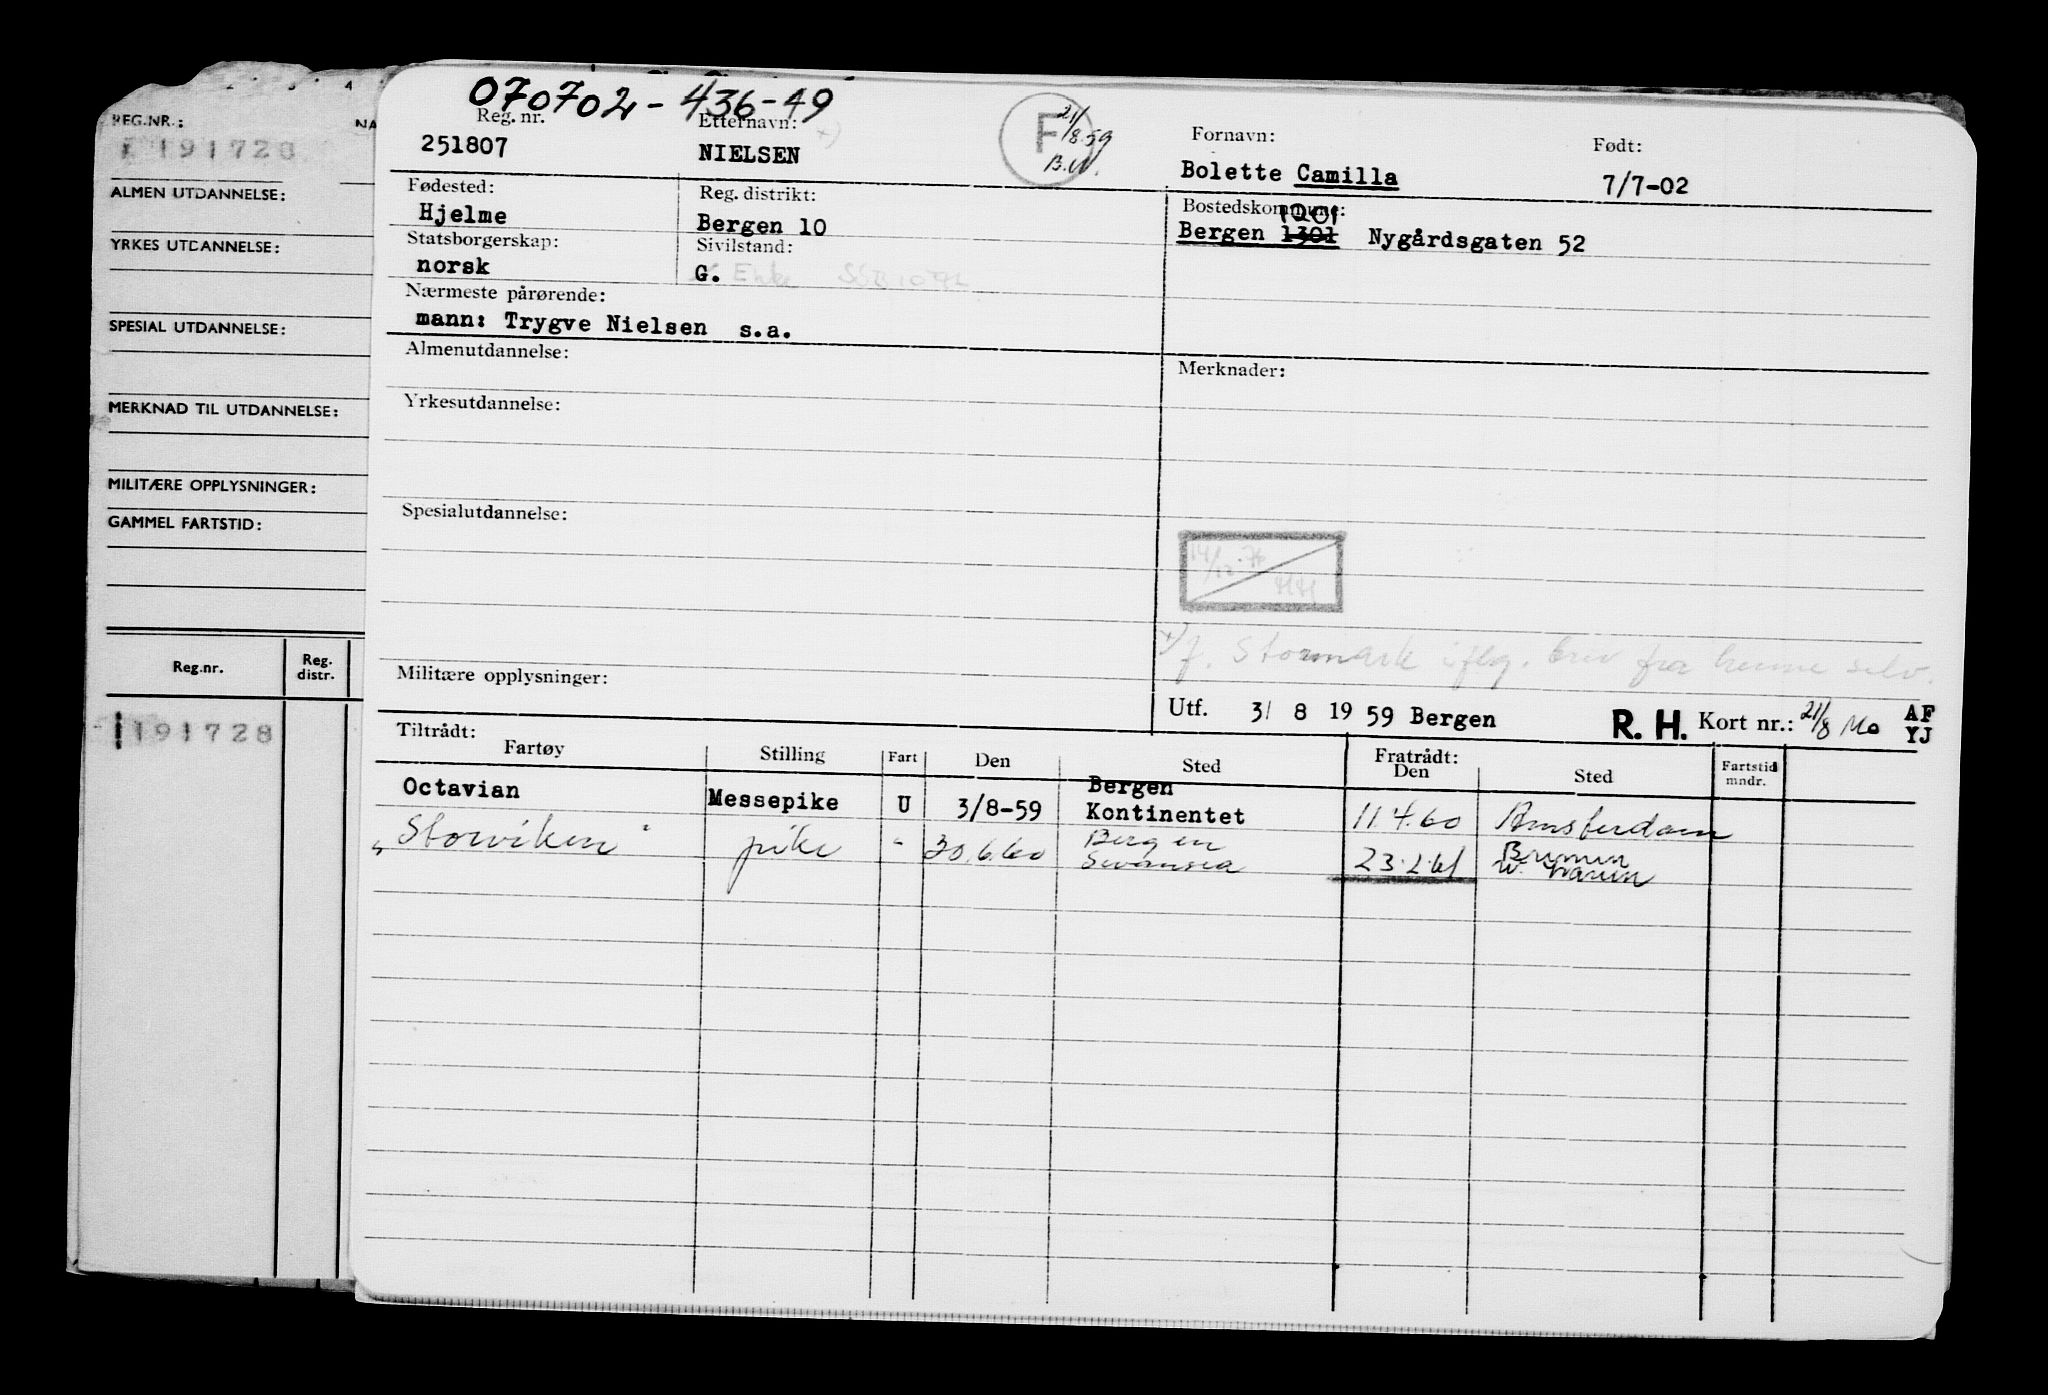 REG.NR.:
191728
ALMEN UTDANNELSE:
YRKES UTDANNELSE:
SPESIAL UTDANNELSE:
MERKNAD TIL UTDANNELSE:
MILITÆRE OPPLYSNINGER:
GAMMEL FARTSTID:
Reg.nr. Reg. distr.
191728
070702-436-49
Reg. nr. Etternavn: Fornavn: Født:
251807 NIELSEN +) F 21/8.59 B.W. Bolette Camilla 7/7-02
Fødested: Reg. distrikt: Bostedskommune:
Hjelme Bergen 10 Bergen 1301 1201 Nygårdsgaten 52
Statsborgerskap: Sivilstand:
norsk G. Enke
Nærmeste pårørende:
mann: Trygve Nielsen s.a.
Almenutdannelse: Merknader:
Yrkesutdannelse:
Spesialutdannelse:
14/12.76
+) f. Stormark iflg. brev fra henne selv.
Militære opplysninger:
Utf. 3/ 8 19 59 Bergen R. H. Kort nr.: 21/8 Mo AF YJ
Tiltrådt: Fratrådt:
Fartøy Stilling Fart Den Sted Den Sted Fartstid mndr.
Octavian Messepike U 3/8-59 Bergen Kontinentet 11.4.60 Amsterdam
"Storviken" pike " 30.6.60 Bergen Swansea 23.2.61 Bremen